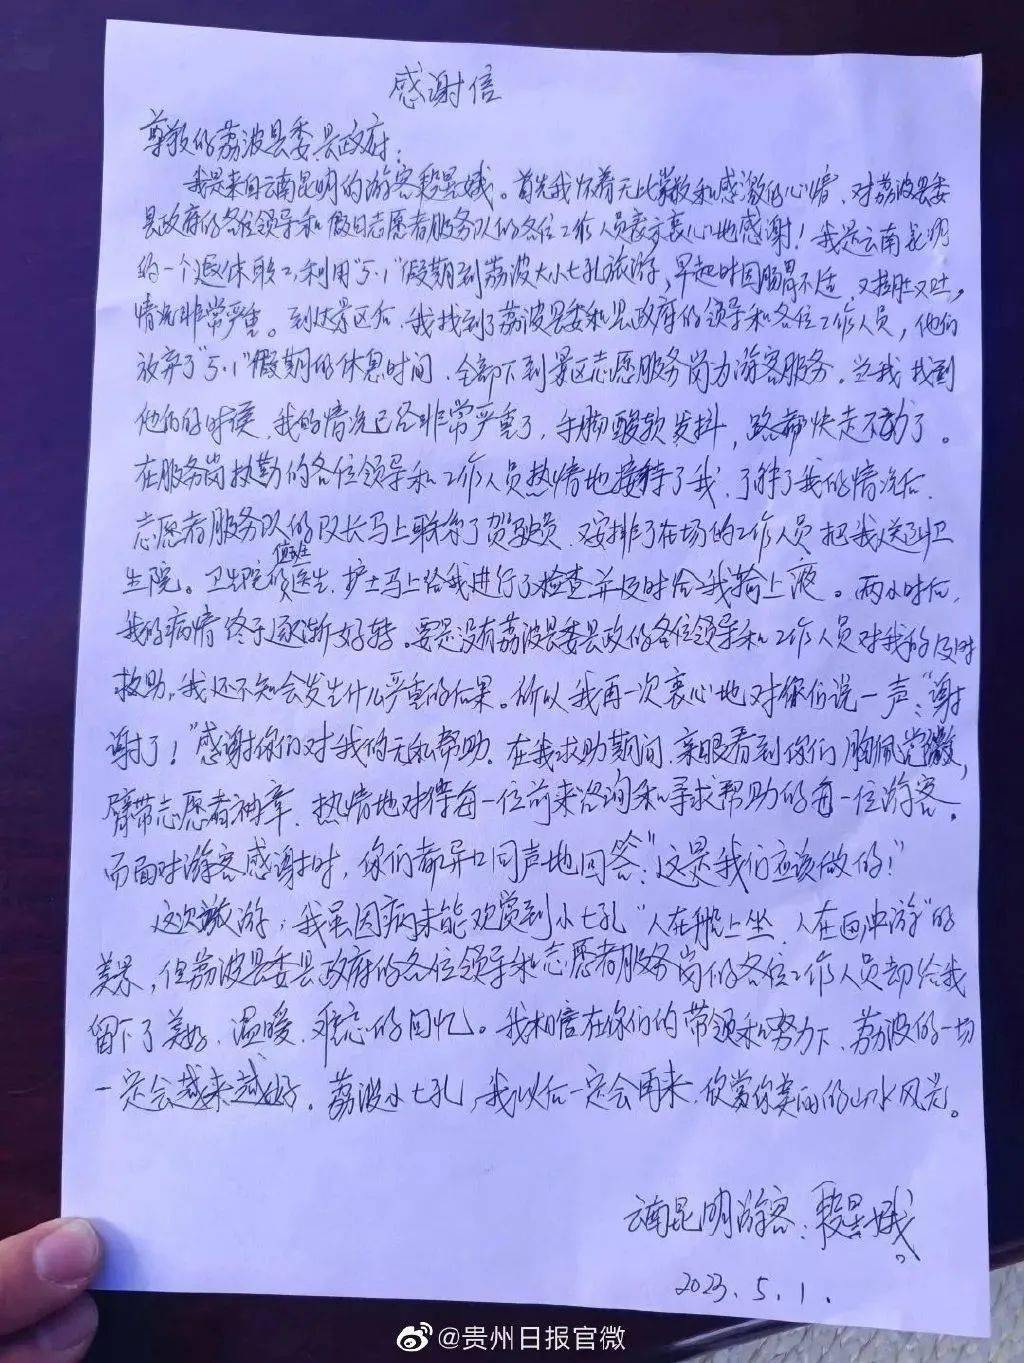 感谢信
尊敬的荔波县委县政府：
我是来自云南昆明的游客段星娥。首先我怀着无比崇敬和感激的心情，对荔波县委
县政府的各位领导和假日志愿者服务队的各位工作人员表示衷心地感谢！我是云南昆明
的一个退休职工，利用"5.1"假期到荔波大小七孔旅游，早起时因肠胃不适，又拉肚又吐，
情况非常严重。到达景区后，我找到了荔波县委和县政府的领导和各位工作人员，他们
放弃了"5.1"假期的休息时间，全部下到景区志愿服务岗为游客服务。当我找到
他们的时候，我的情况已经非常严重了，手脚酸软发抖，路都快走不动了。
在服务岗执勤的各位领导和工作人员热情地接待了我，了解了我的情况后，
志愿者服务队的队长马上联系了驾驶员，又安排了在场的工作人员把我送到卫
生院。卫生院的值班医生、护士马上给我进行了检查并及时给我输上液。两小时后，
我的病情终于逐渐好转。要是没有荔波县委县政的各位领导和工作人员对我的及时
救助，我还不知会发生什么严重的后果。所以我再一次衷心地对你们说一声："谢
谢了！"感谢你们对我的无私帮助。在我求助期间，亲眼看到你们胸佩党徽，
臂带志愿者袖章，热情地对待每一位前来咨询和寻求帮助的每一位游客。
而面对游客感谢时，你们都异口同声地回答："这是我们应该做的！"
这次旅游，我虽因病未能欢赏到小七孔"人在船上坐，人在画中游"的
美景，但荔波县委县政府的各位领导和志愿者服务岗们的各位工作人员却给我
留下了美好、温暖、难忘的回忆。我相信在你们的带领和努力下，荔波的一切
一定会越来越好。荔波小七孔，我以后一定会再来，欣赏你美丽的山水风光。
云南昆明游客：段星娥
2023.5.1.
@贵州日报官微